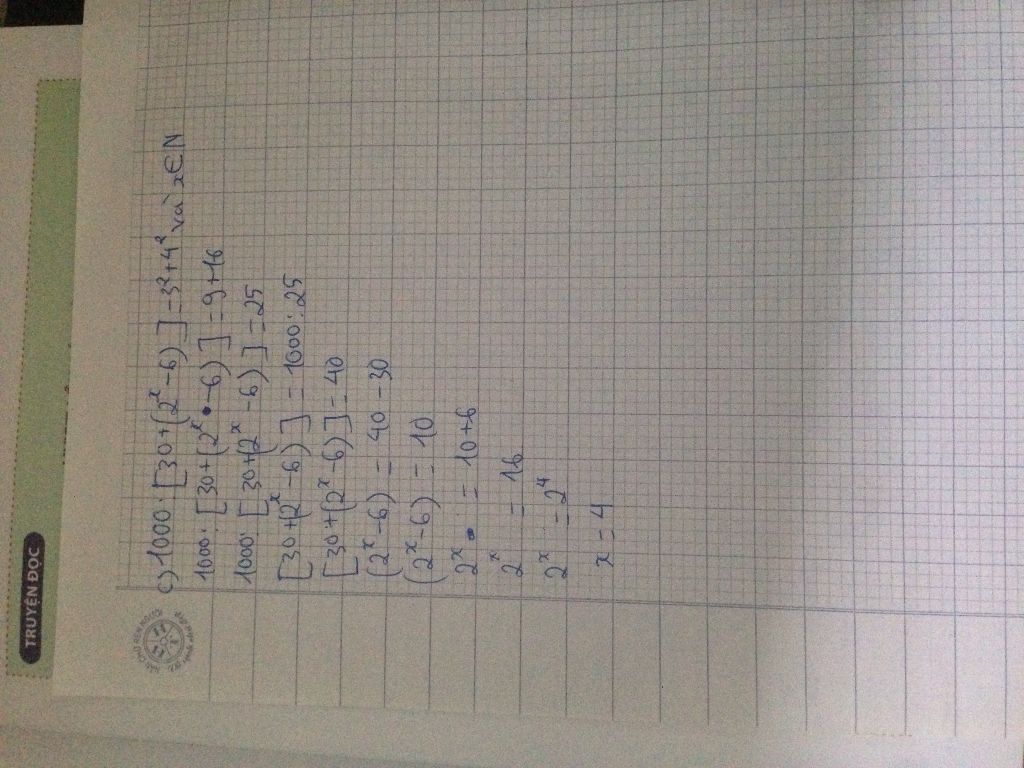 TRUYỆN ĐỌC
c) 1000 : [30 + (2^x - 6)] = 3² + 4² và x ∈ N
1000 : [30 + (2^x - 6)] = 9 + 16
1000 : [30 + (2^x - 6)] = 25
[30 + (2^x - 6)] = 1000 : 25
[30 + (2^x - 6)] = 40
(2^x - 6) = 40 - 30
(2^x - 6) = 10
2^x = 10 + 6
2^x = 16
2^x = 2⁴
x = 4